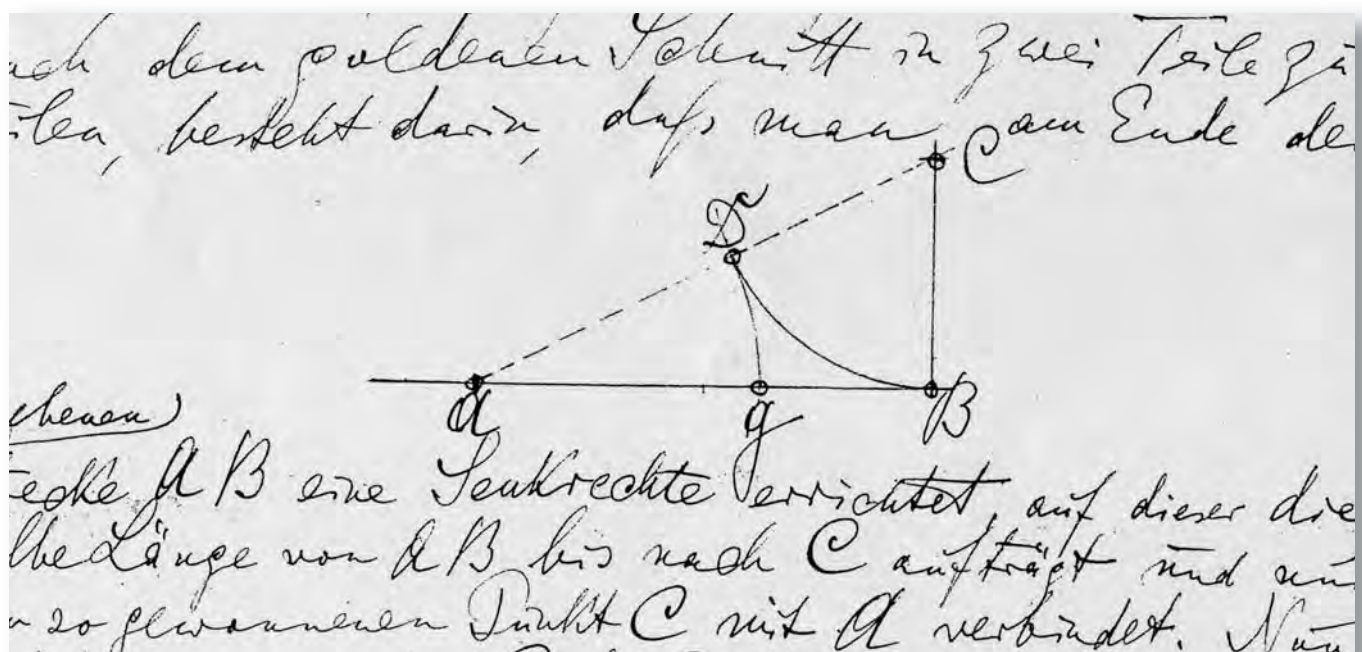 ach dem goldenen Schnitt in zwei Teile zu
ilen, besteht darin, daß man am Ende de
C
D
A g B
ebenen)
ecke AB eine Senkrechte errichtet, auf dieser die
lbe Länge von AB bis nach C aufträgt und nun
n so gewonnenen Punkt C mit A verbindet. Nun